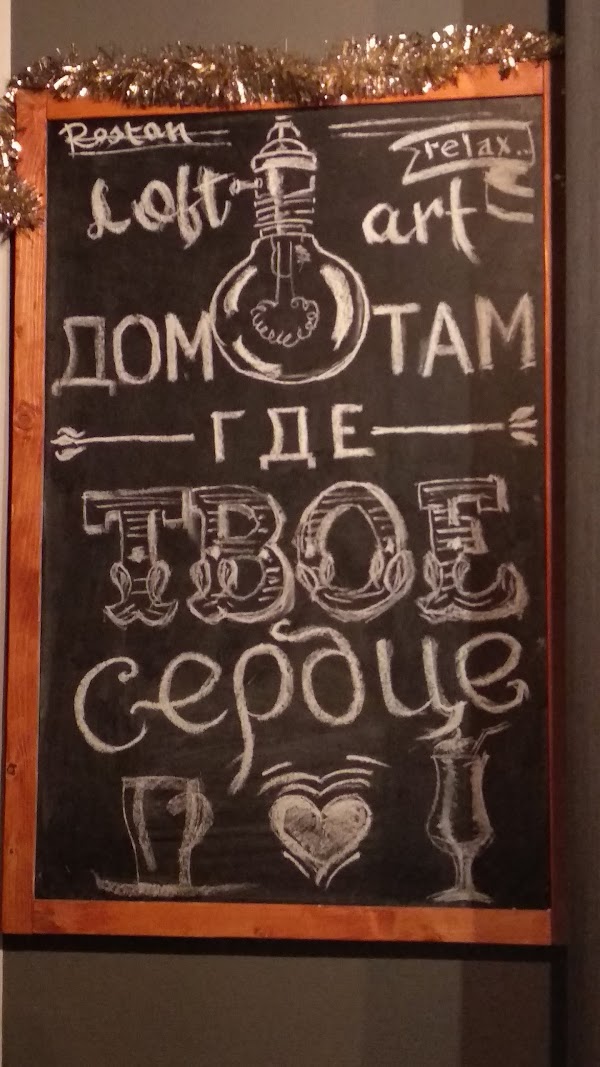 Restan
relax..
Loft art
ДОМ ТАМ
ГДЕ
ТВОЕ
сердце